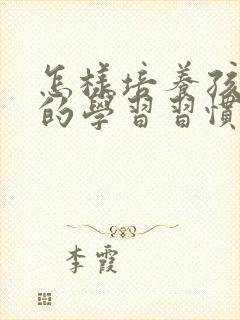 怎樣培養孩
的學習習慣
李霞